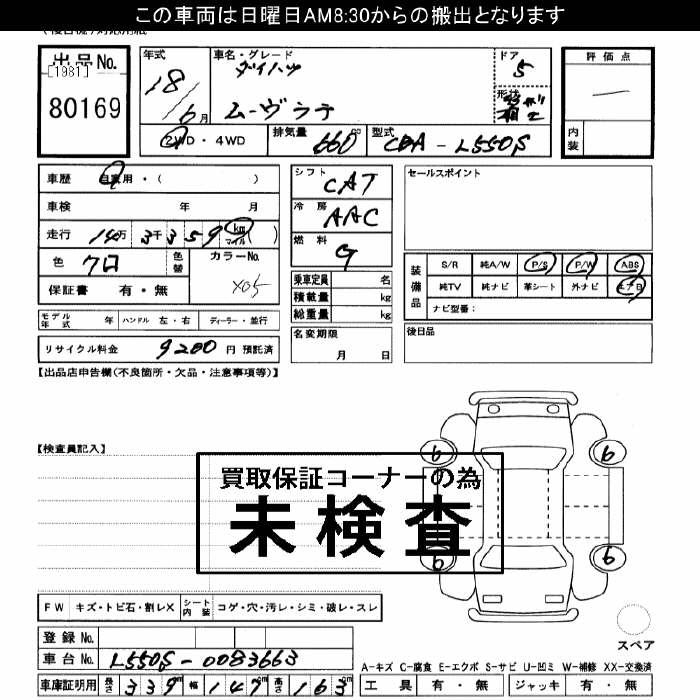 この車両は日曜日AM8:30からの搬出となります
出品No.
[1981]
80169
年式 18/6月
車名・グレード
ダイハツ
ムーヴラテ
ドア 5
形状
評価点
内装
2WD・4WD
排気量 660cc
型式 CBA-L550S
車歴 自家用・( )
車検 年 月
走行 14万3千359 km マイル ( )
色 クロ 色替
カラーNo. X05
保証書 有・無
モデル年式 年 ハンドル 左・右 ディーラー・並行
リサイクル料金 9200 円 預託済
シフト CAT
冷房 AAC
燃料 G
乗車定員 名
積載量 kg
総重量 kg
名変期限 月 日
セールスポイント
装備品
S/R 純A/W P/S P/W ABS
純TV 純ナビ 革シート 外ナビ エアB
ナビ型番:
後日品
【出品店申告欄(不良箇所・欠品・注意事項等)】
【検査員記入】
買取保証コーナーの為
未検査
6 6
6 6
FW キズ・トビ石・割レX シート内装 コゲ・穴・汚レ・シミ・破レ・スレ
登録No.
車台No. L550S-0083663
車庫証明用 長さ 339cm 幅 147cm 高さ 163cm
スペア
A-キズ C-腐食 E-エクボ S-サビ U-凹ミ W-補修 XX-交換済
工具 有・無 ジャッキ 有・無